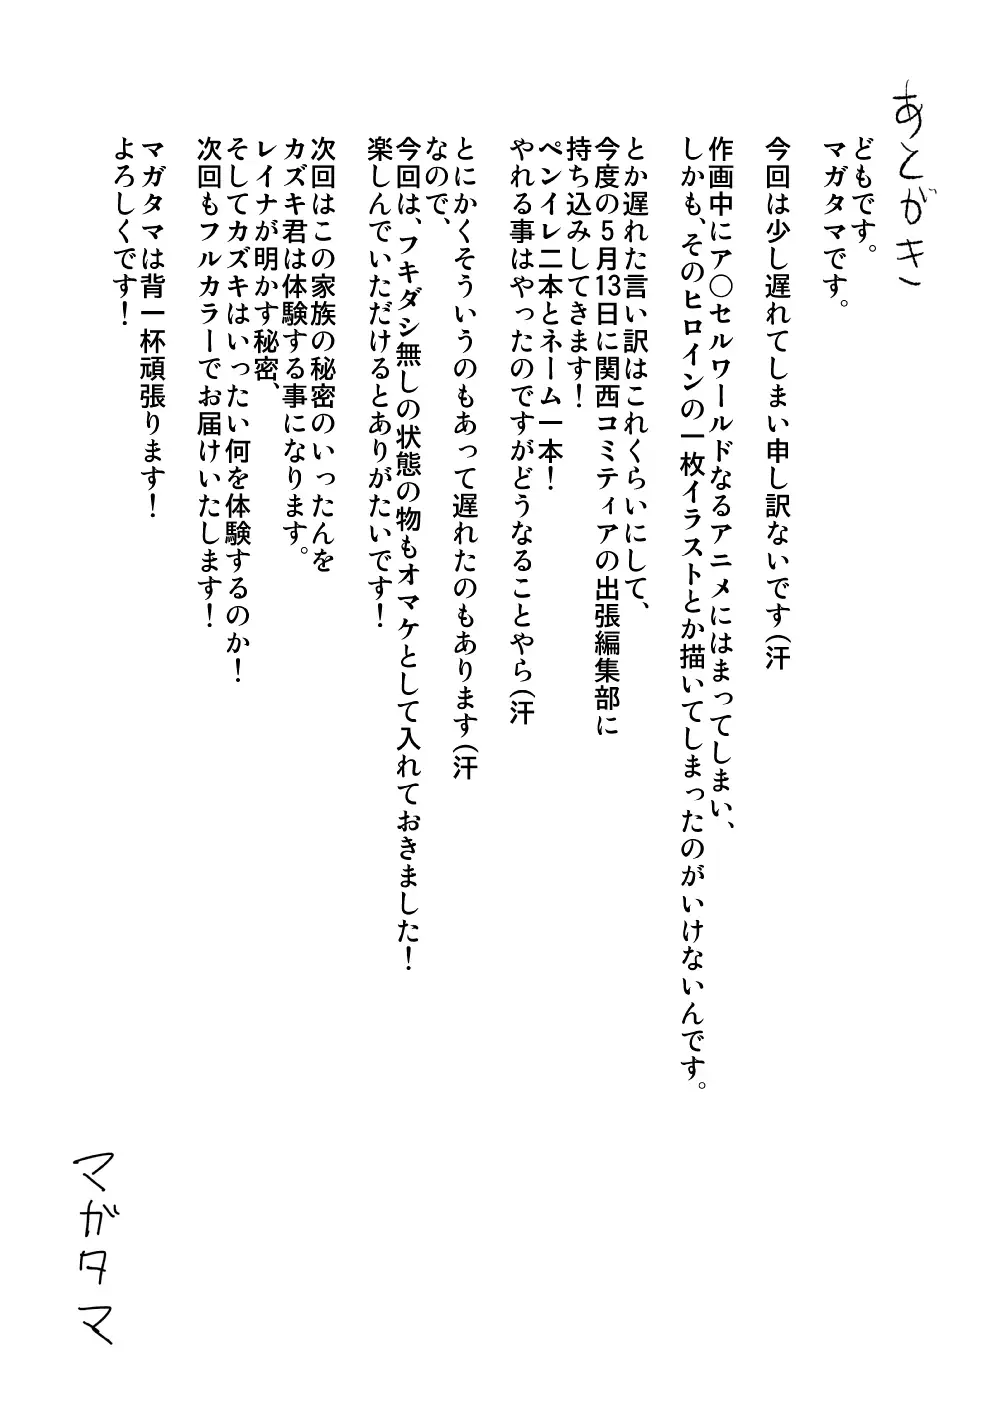 あとがき
どもです。
マガタマです。
今回は少し遅れてしまい申し訳ないです(汗
作画中にア〇セルワールドなるアニメにはまってしまい、
しかも、そのヒロインの一枚イラストとか描いてしまったのがいけないんです。
とか遅れた言い訳はこれくらいにして、
今度の5月13日に関西コミティアの出張編集部に
持ち込みしてきます！
ペンイレ二本とネーム一本！
やれる事はやったのですがどうなることやら(汗
とにかくそういうのもあって遅れたのもあります(汗
なので、
今回は、フキダシ無しの状態の物もオマケとして入れておきました！
楽しんでいただけるとありがたいです！
次回はこの家族の秘密のいったんを
カズキ君は体験する事になります。
レイナが明かす秘密、
そしてカズキはいったい何を体験するのか！
次回もフルカラーでお届けいたします！
マガタマは背一杯頑張ります！
よろしくです！
マガタマ